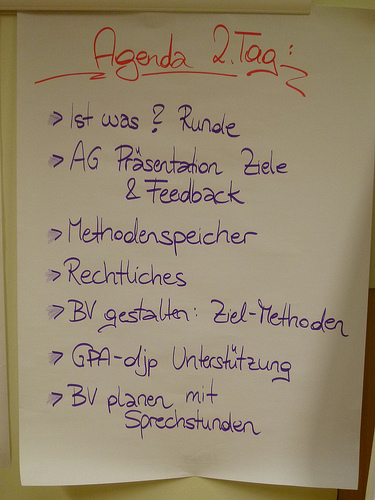 Agenda 2. Tag:
> Ist was? Runde
> AG Präsentation Ziele
& Feedback
> Methodenspeicher
> Rechtliches
> BV gestalten: Ziel-Methoden
> GPA-djp Unterstützung
> BV planen mit
Sprechstunden